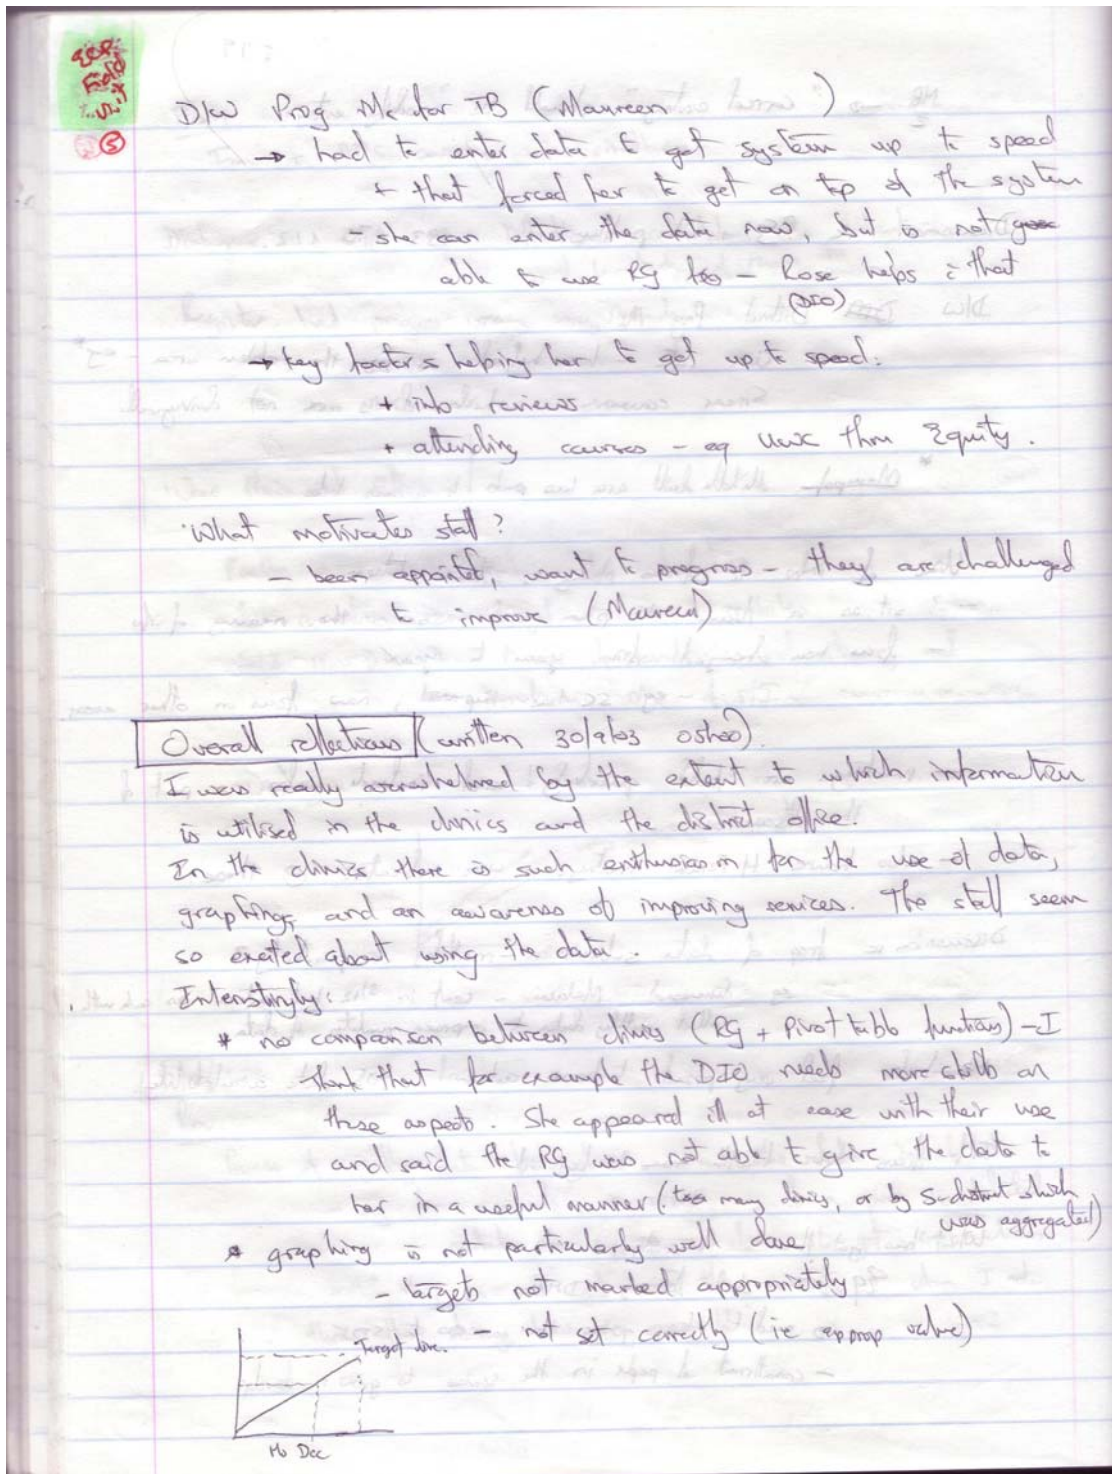 ECP
Field
Visit
5
D/W Prog Mx for TB (Maureen )
→ had to enter data to get system up to speed
+ that forced her to get on top of the system
- she can enter the data now, but is not
able to use RG too - Rose helps c̄ that
(DIO)
→ key factors helping her to get up to speed:
+ info reviews
+ attending courses - eg UWC thru Equity.
What motivates staff?
- been appointed, want to progress - they are challenged
to improve (Maureen)
Overall reflections (written 30/9/03 05h00).
I was really overwhelmed by the extent to which information
is utilised in the clinics and the district office.
In the clinics there is such enthusiasm for the use of data,
graphing, and an awareness of improving services. The staff seem
so excited about using the data.
Interestingly:
* no comparison between clinics (RG + Pivot table functions) - I
think that for example the DIO needs more skills on
these aspects. She appeared ill at ease with their use
and said the RG was not able to give the data to
her in a useful manner (too many clinics, or by S-district which
was aggregated)
* graphing is not particularly well done
- targets not marked appropriately
- not set correctly (ie approp value)
Target line.
Dec